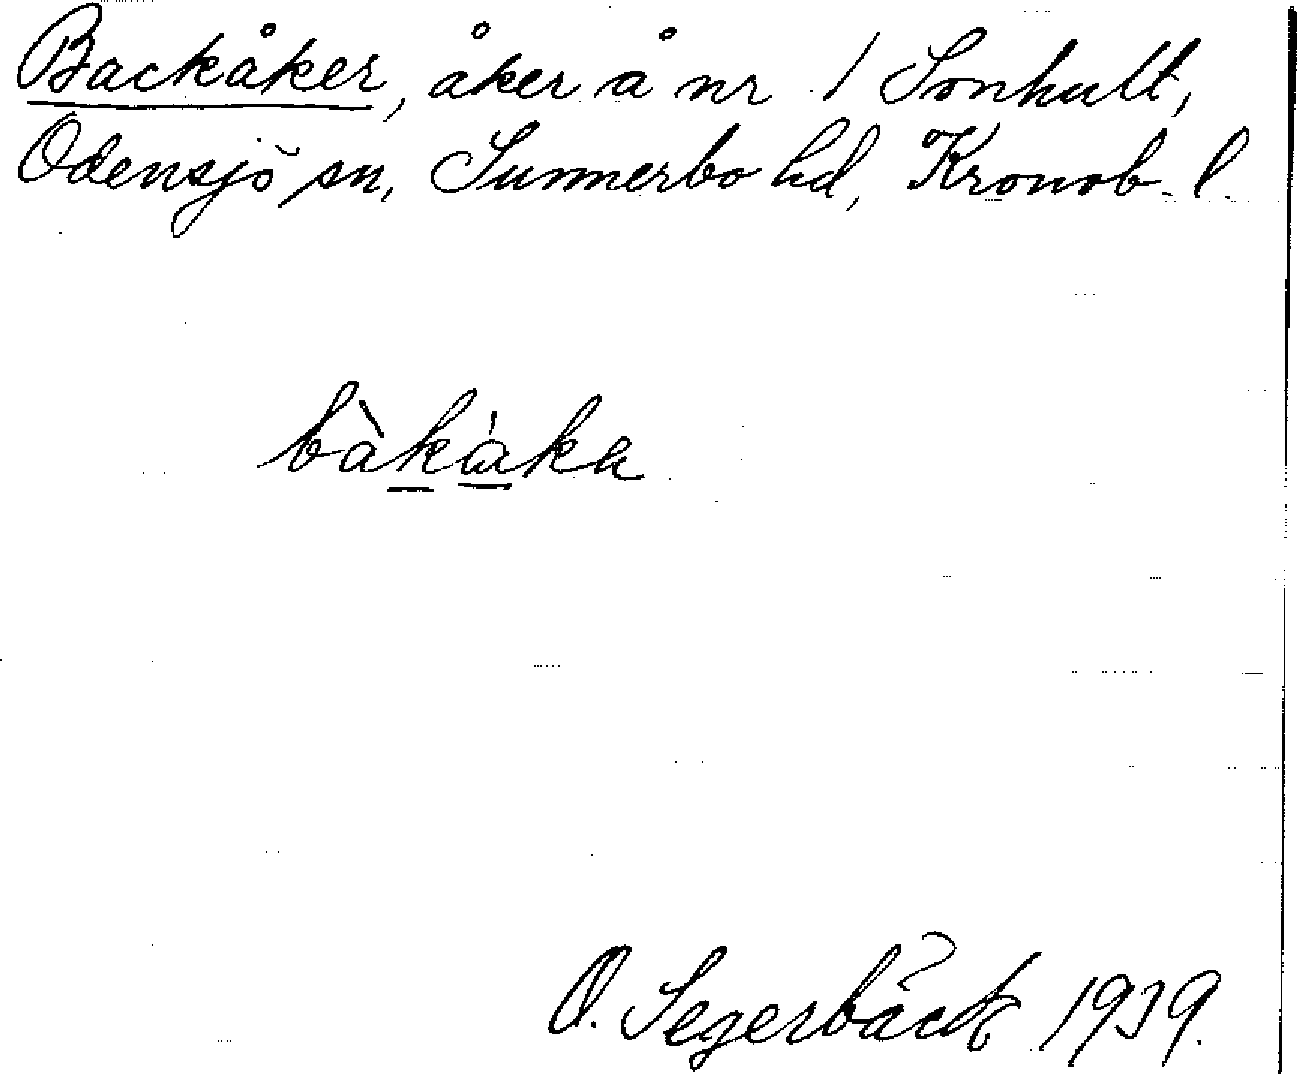 Backåker, åker å nr 1 Sonhult,
Odensjö sn, Sunnerbo hd, Kronob. l.
bàkàka
O. Segerbäck 1939.